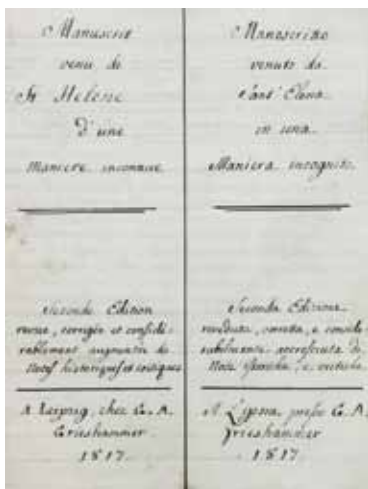 Manuscrit
venu de
St Helene
D'une
maniere inconnue
Seconde Edition
revue, corrigée et considé-
rablement augmentée de
Notes historiques et critiques
A Leipzig, chez G. A.
Grieshammer
1817.
Manoscritto
venuto da
Sant' Elena
in una
Maniera incognita.
Seconda Edizione
riveduta, corretta, e conside-
rabilmente accresciuta di
Note istoriche, e critiche
A Lipsia, presso G. A.
Grieshammer
1817.